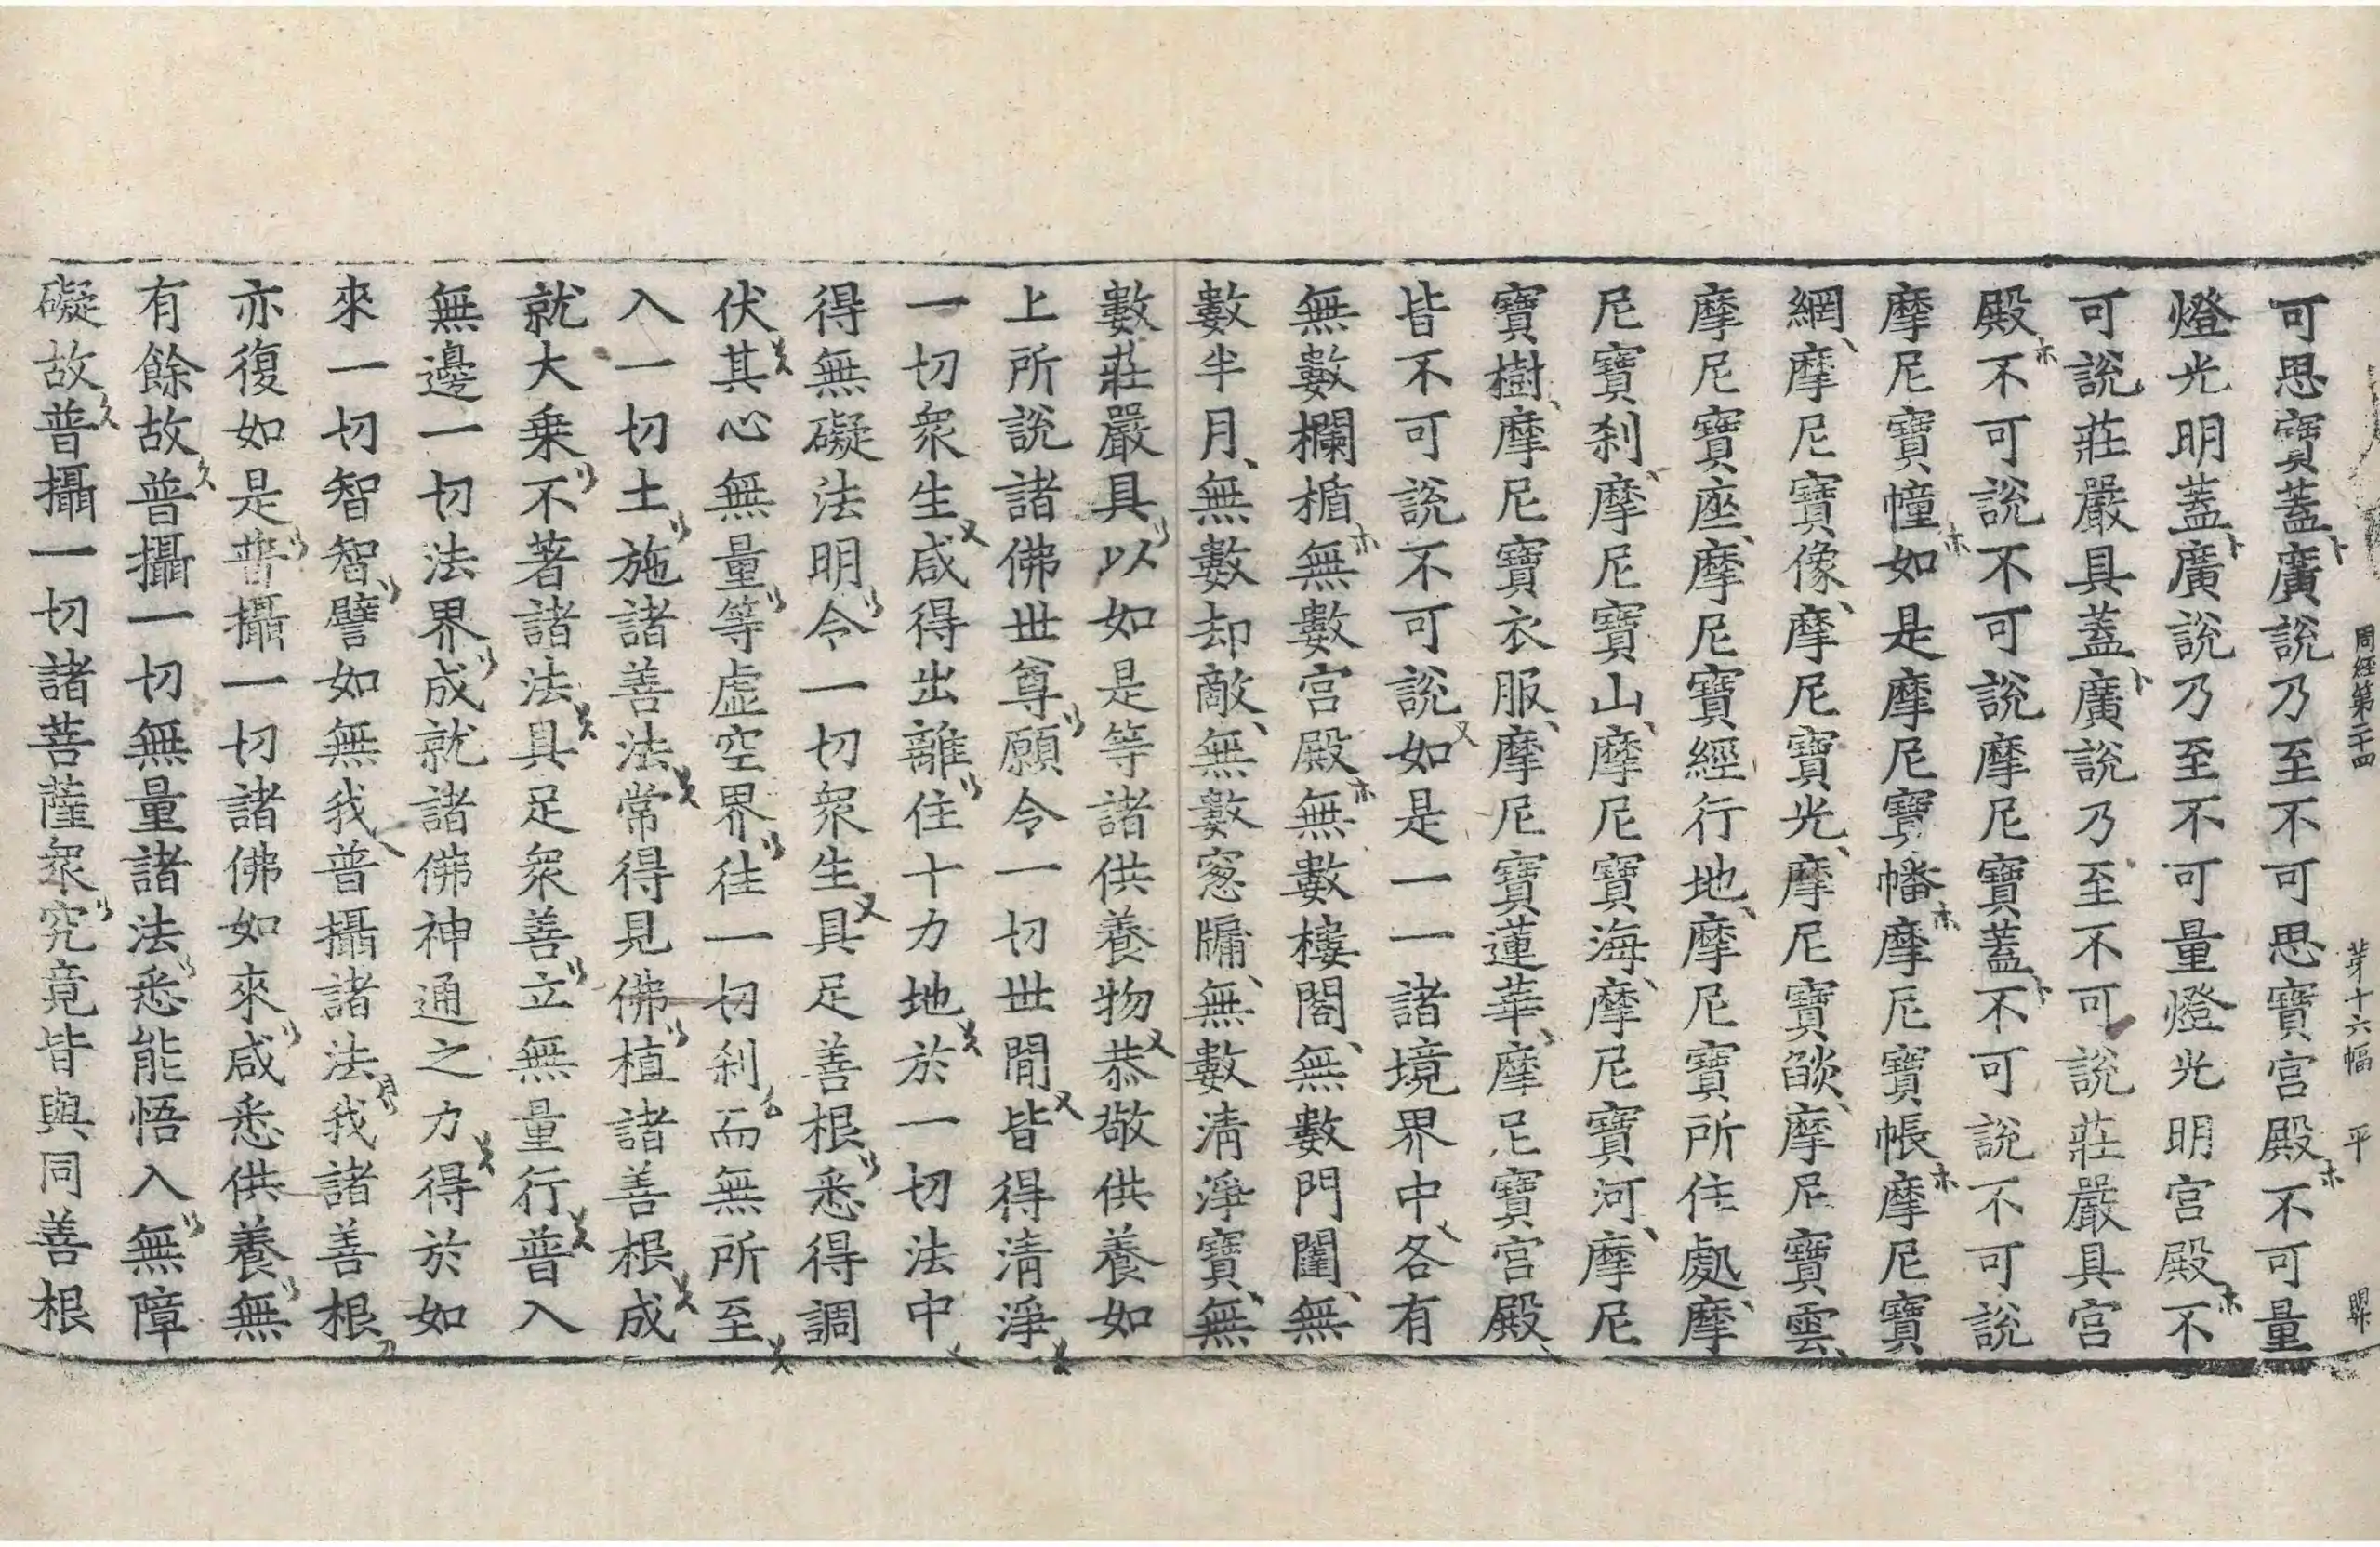 周經第二十四 苐十六幅 平
可思寶蓋廣說乃至不可思寶宫殿不可量
燈光明蓋廣說乃至不可量燈光明宫殿不
可說莊嚴具蓋廣說乃至不可說莊嚴具宫
殿不可說不可說摩尼寶蓋不可說不可說
摩尼寶幢如是摩尼寶幡摩尼寶帳摩尼寶
網摩尼寶像摩尼寶光摩尼寶燄摩尼寶雲
摩尼寶座摩尼寶經行地摩尼寶所住處摩
尼寶刹摩尼寶山摩尼寶海摩尼寶河摩尼
寶樹摩尼寶衣服摩尼寶蓮華摩尼寶宫殿
皆不可說不可說如是一一諸境界中各有
無數欄楯無數宫殿無數樓閣無數門闥無
數半月無數却敵無數窻牖無數清淨寶無
數莊嚴具以如是等諸供養物恭敬供養如
上所說諸佛世尊願令一切世間皆得清淨
一切衆生咸得出離住十力地於一切法中
得無礙法明令一切衆生具足善根悉得調
伏其心無量等虛空界往一切刹而無所至
入一切土施諸善法常得見佛植諸善根成
就大乗不著諸法具足衆善立無量行普入
無邊一切法界成就諸佛神通之力得於如
來一切智智譬如無我普攝諸法我諸善根
亦復如是普攝一切諸佛如來咸悉供養無
有餘故普攝一切無量諸法悉能悟入無障
礙故普攝一切諸菩薩衆究竟皆與同善根